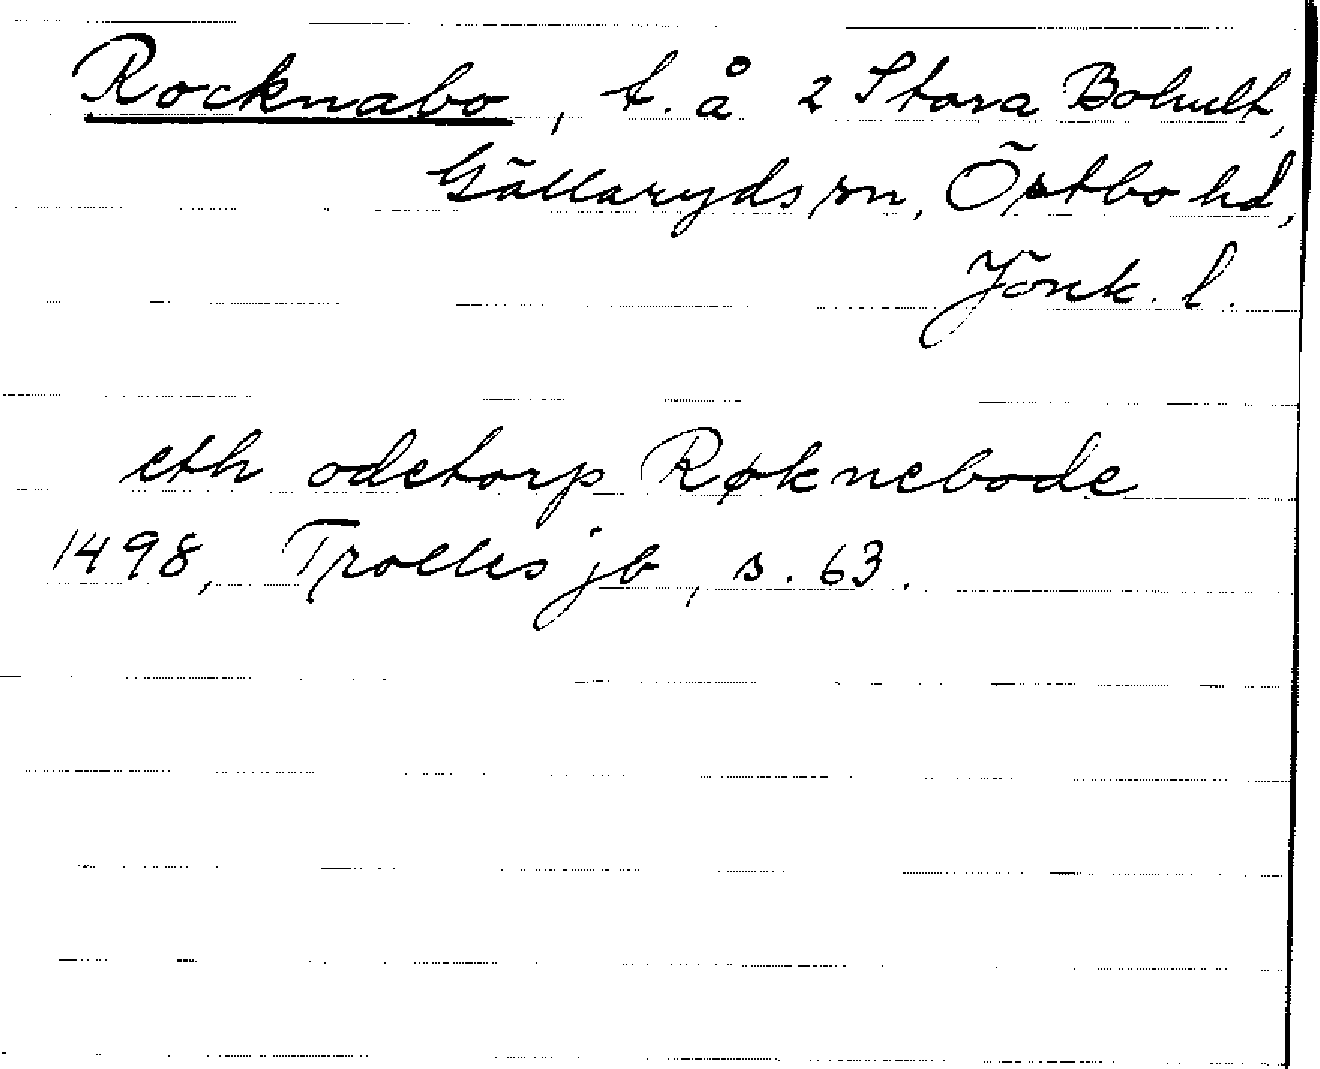 Rocknabo, t. å 2 Stora Bohult,
Gällaryds sn, Östbo hd,
Jönk. l.
eth odetorp Røknebode
1498, Trolles jb, s. 63.